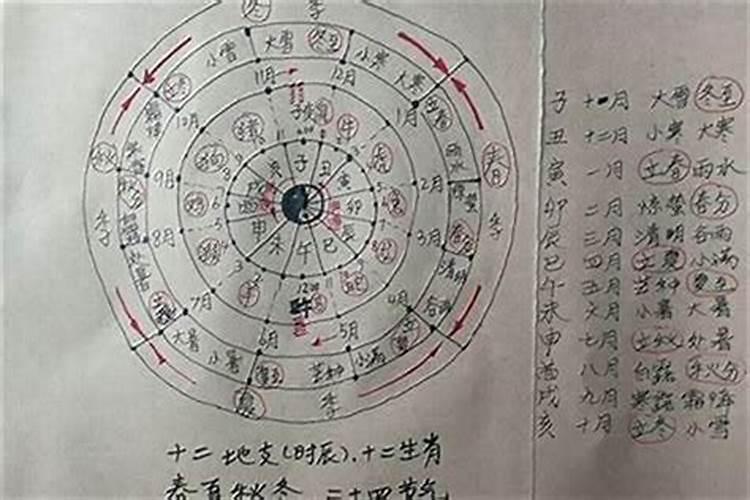 冬 季
小雪 大雪 冬至 小寒 大寒
立冬 立春
11月 12月 1月
10月
雨水
秋 春
9月 2月
惊蛰
秋分 春分
季 季
8月 3月
清明
谷雨
7月 4月
立秋
6月 5月
大暑 小暑 夏至 芒种 小满 立夏
夏 季
子 丑 寅 卯 辰 巳 午 未 申 酉 戌 亥
鼠 牛 虎 兔 龙 蛇 马 羊 猴 鸡 狗 猪
子 十一月 大雪 冬至
丑 十二月 小寒 大寒
寅 一月 立春 雨水
卯 二月 惊蛰 春分
辰 三月 清明 谷雨
巳 四月 立夏 小满
午 五月 芒种 夏至
未 六月 小暑 大暑
申 七月 立秋 处暑
酉 八月 白露 秋分
戌 九月 寒露 霜降
亥 十月 立冬 小雪
十二地支(时辰)、十二生肖
春夏秋冬 二十四节气